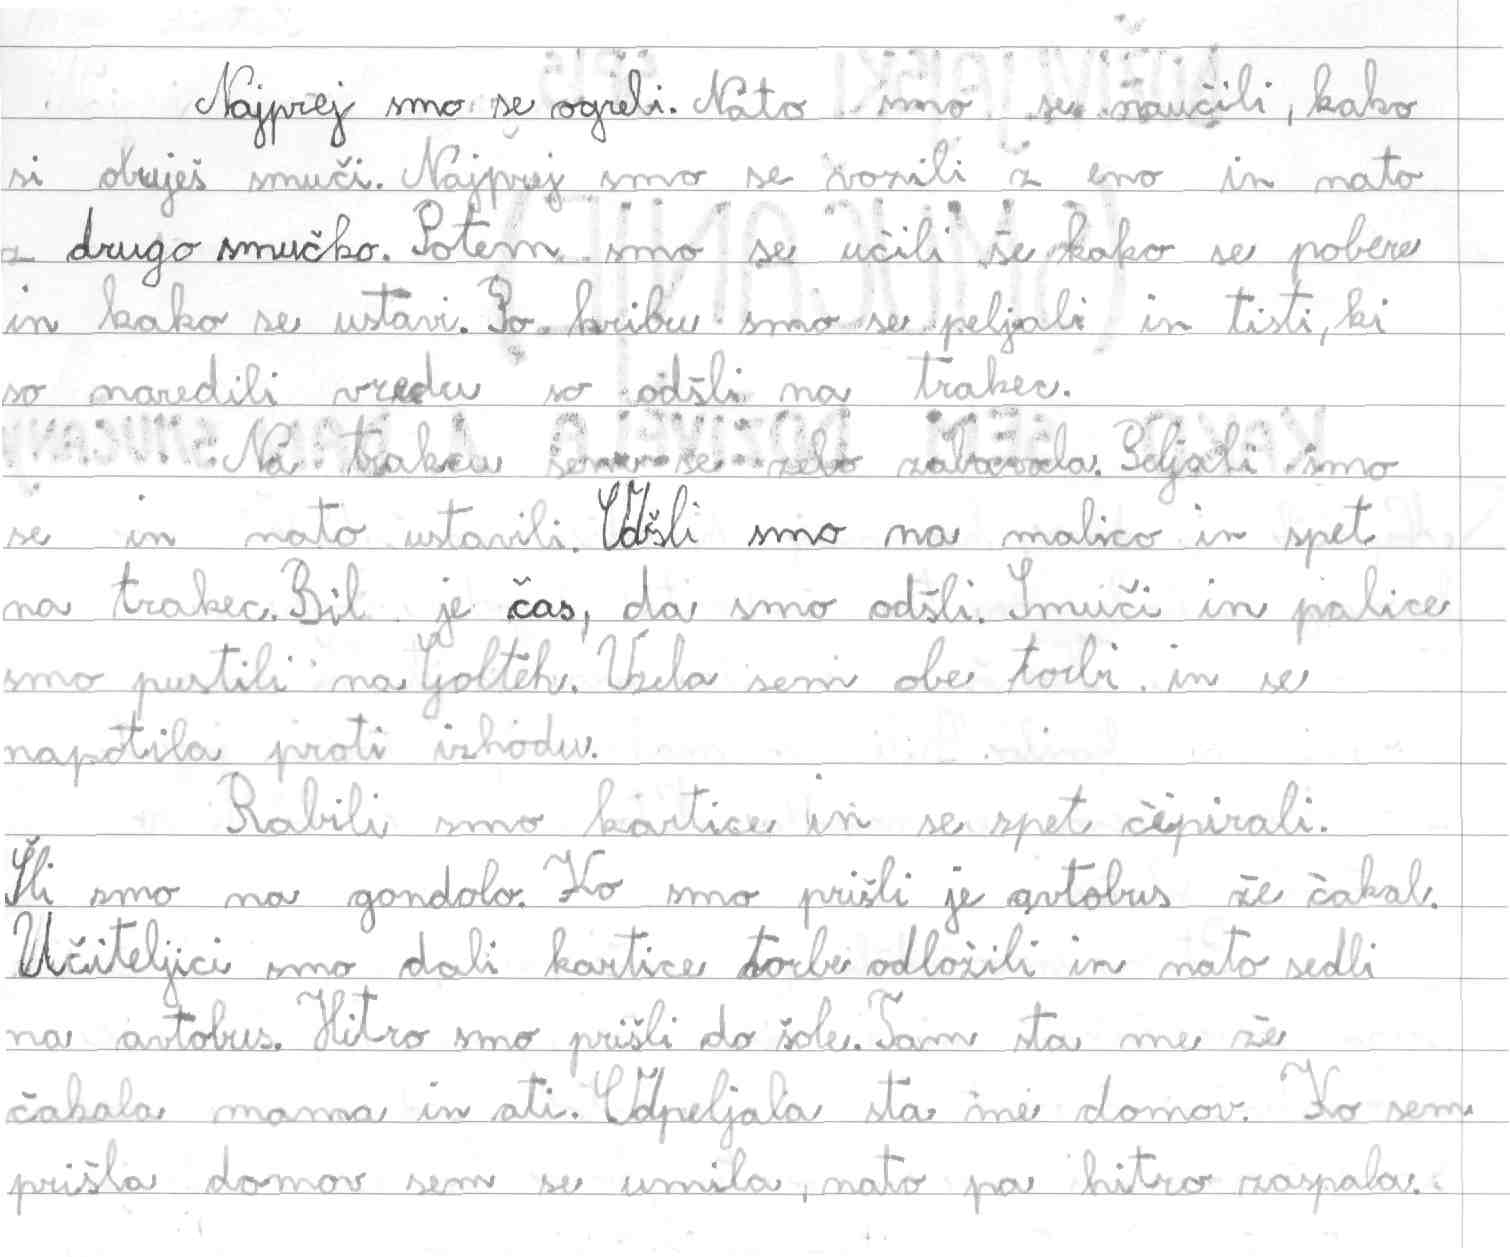 Najprej smo se ogreli. Nato smo se naučili, kako
si obuješ smuči. Najprej smo se vozili z eno in nato
z drugo smučko. Potem smo se učili še kako se pobere
in kako se ustavi. Po hribu smo se peljali in tisti, ki
so naredili vredu so odšli na trakec.
Na trakcu sem se zelo zabavala. Peljali smo
se in nato ustavili. Odšli smo na malico in spet
na trakec. Bil je čas, da smo odšli. Smuči in palice
smo pustili na Golteh. Vzela sem obe torbi in se
napotila proti izhodu.
Rabili smo kartice in se spet čipirali.
Šli smo na gondolo. Ko smo prišli je avtobus že čakal.
Učiteljici smo dali kartice torbe odložili in nato sedli
na avtobus. Hitro smo prišli do šole. Tam sta me že
čakala mama in ati. Odpeljala sta me domov. Ko sem
prišla domov sem se umila, nato pa hitro zaspala.